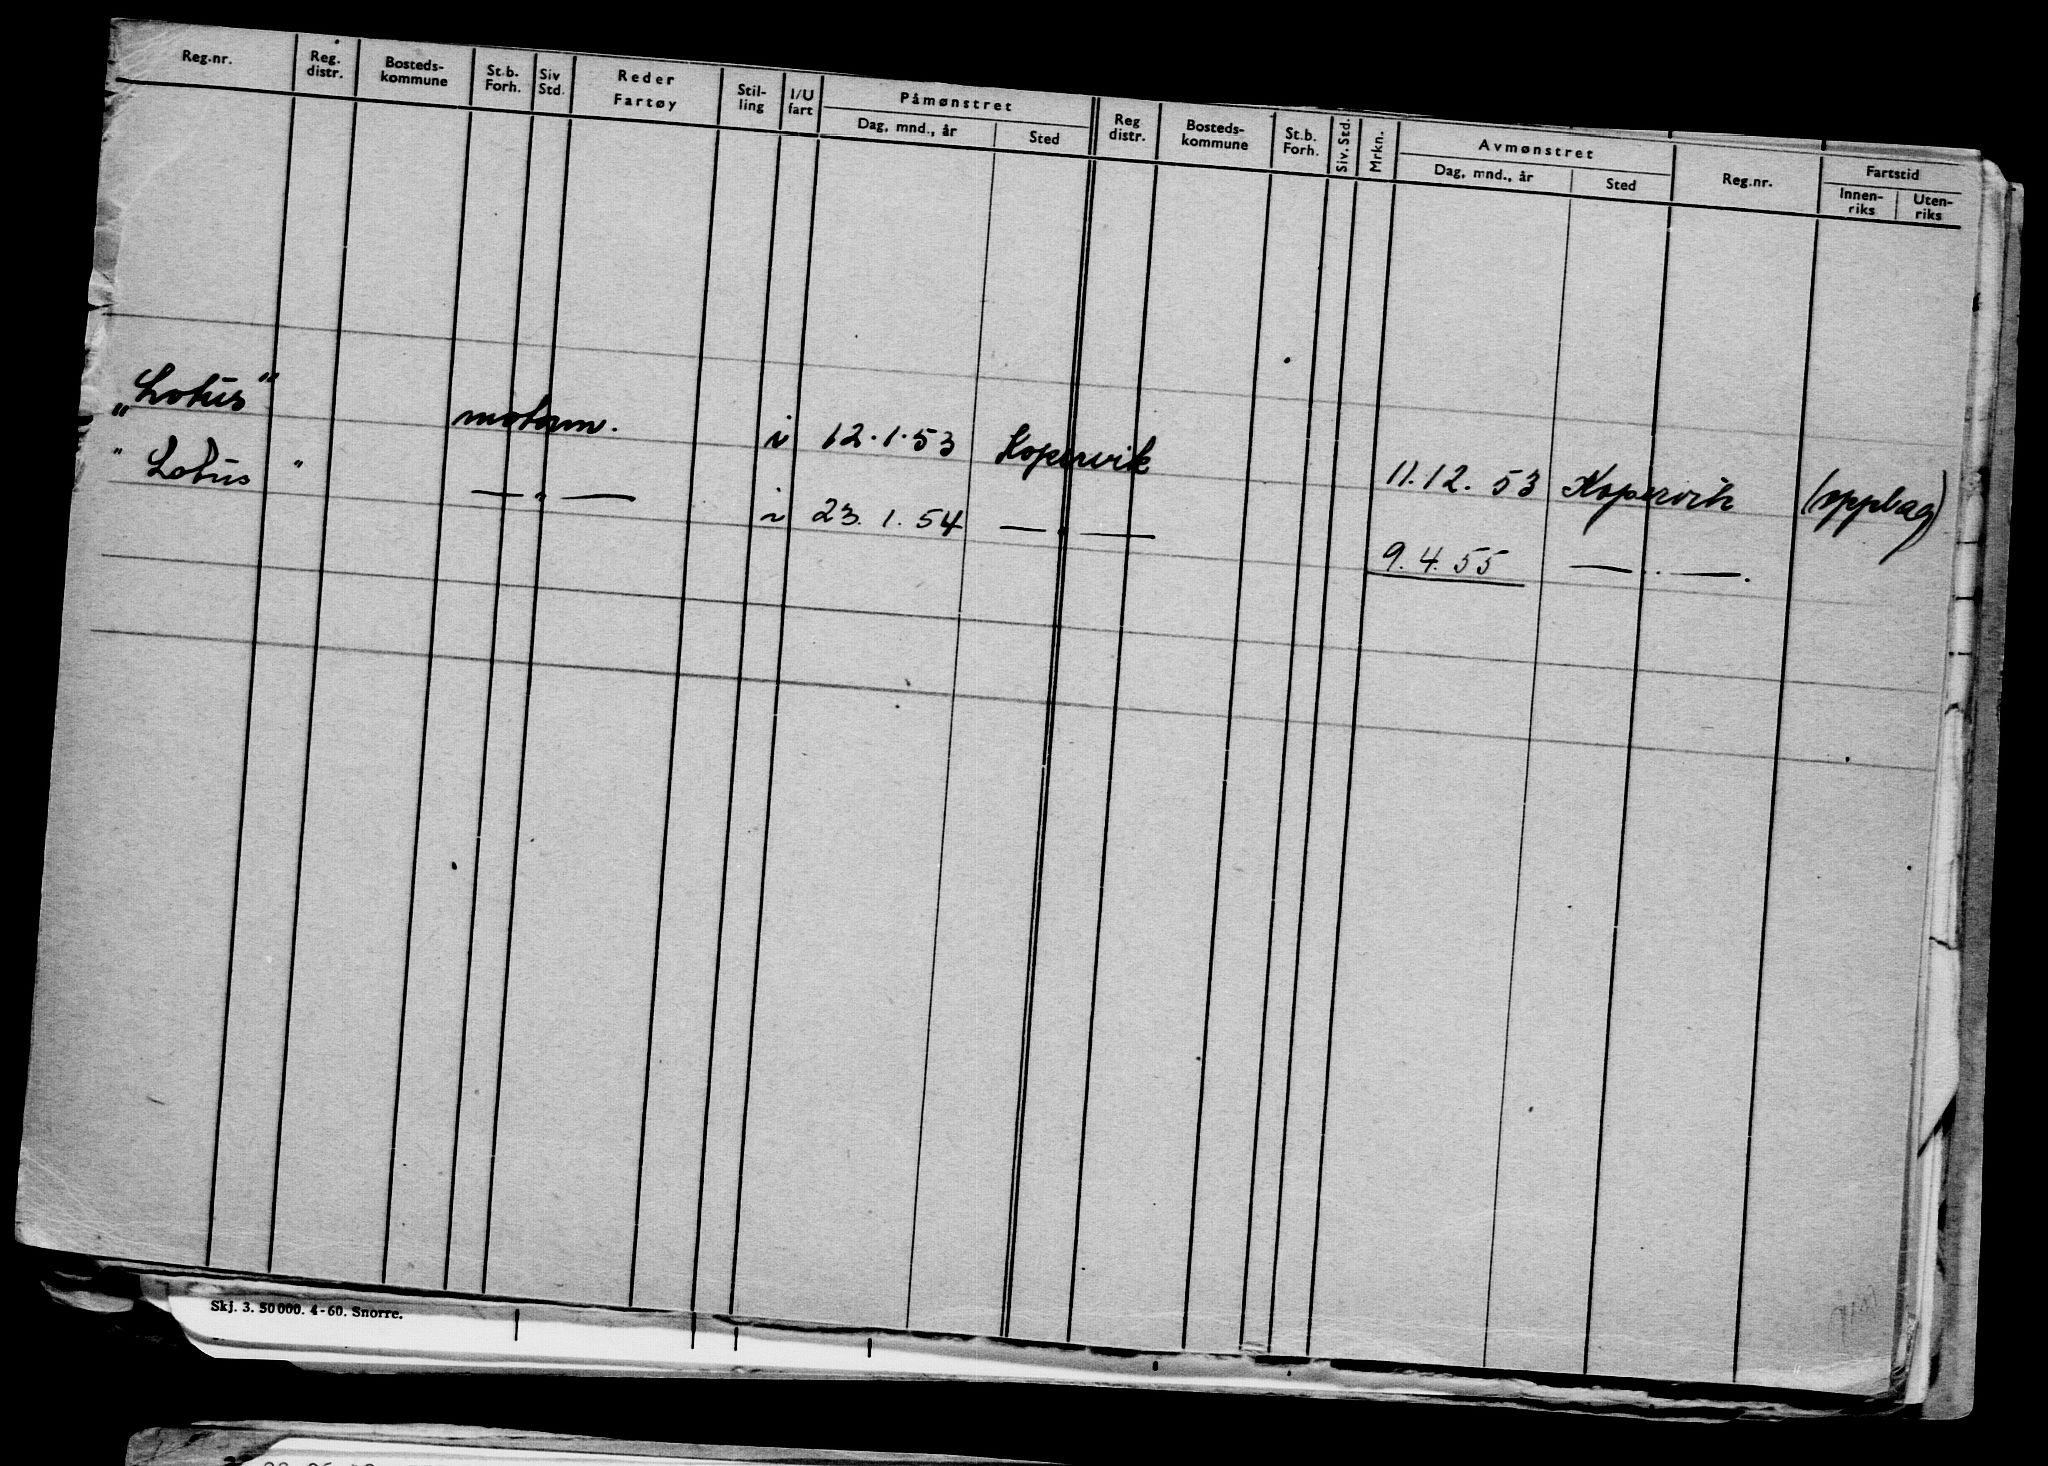 Reg.nr. Reg. distr. Bosteds- kommune St.b. Forh. Siv Std. Reder Fartøy Stil- ling I/U fart Påmønstret Dag, mnd., år Sted Reg distr. Bosteds- kommune St.b. Forh. Siv. Std. Mrkn. Avmønstret Dag, mnd., år Sted Reg.nr. Fartstid Innen- riks Uten- riks
„Lotus" motorm. i 12.1.53 Kopervik 11.12.53 Kopervik (opplag)
" Lotus " — " — i 23.1.54 — " — 9.4.55 — " —.
Skj. 3. 50 000. 4-60. Snorre.